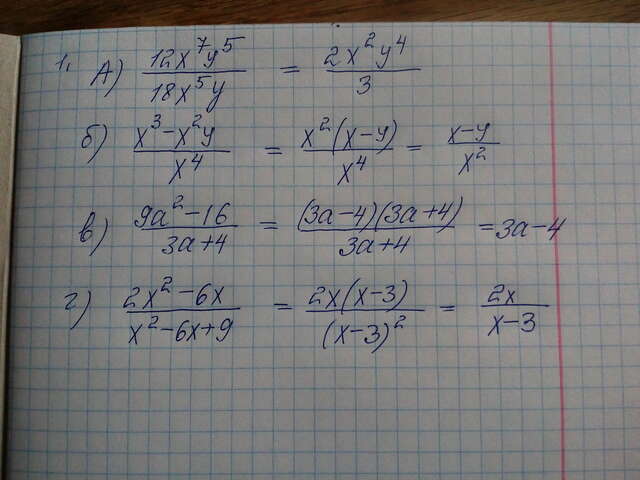 1. А) 12x⁷y⁵ / 18x⁵y = 2x²y⁴ / 3
б) x³-x²y / x⁴ = x²(x-y) / x⁴ = x-y / x²
в) 9a²-16 / 3a+4 = (3a-4)(3a+4) / 3a+4 = 3a-4
г) 2x²-6x / x²-6x+9 = 2x(x-3) / (x-3)² = 2x / x-3